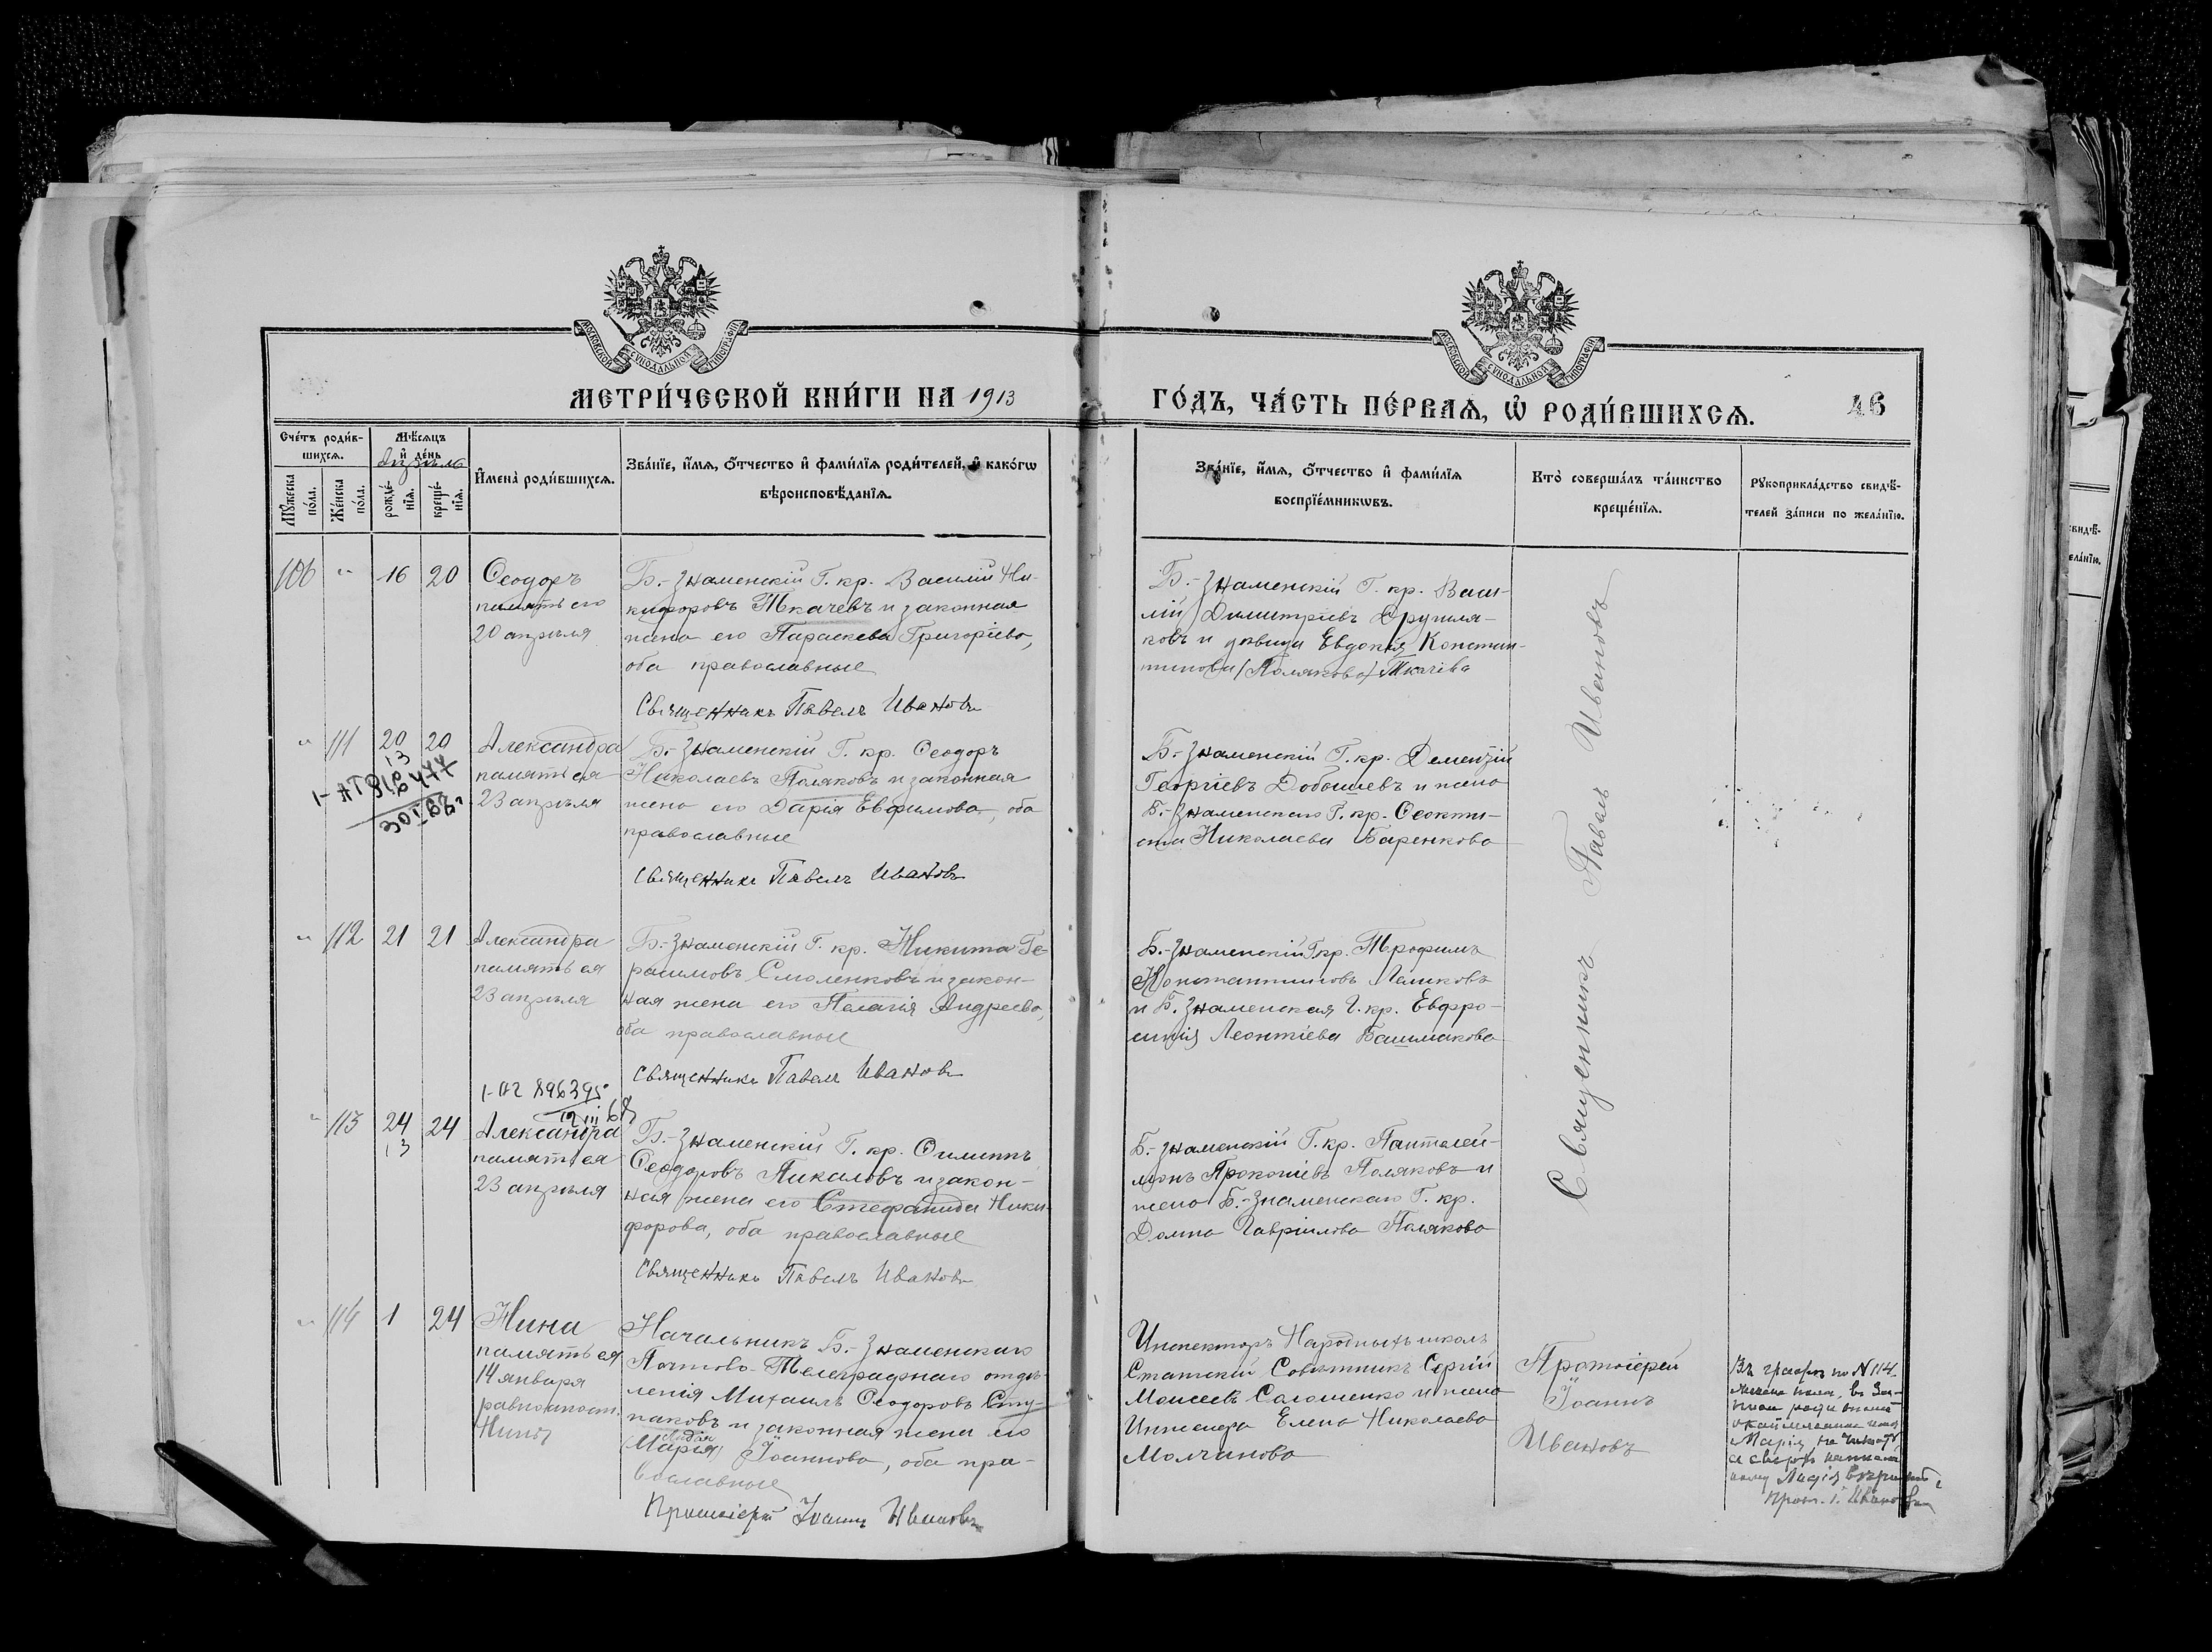 МОСКОВСКОЙ СѴНОДАЛЬНОЙ ТИПОГРАФІИ
МОСКОВСКОЙ СѴНОДАЛЬНОЙ ТИПОГРАФІИ
МЕТРИ́ЧЕСКОЙ КНИ́ГИ НА 1913
ГО́ДЪ, ЧА́СТЬ ПЕ́РВАѦ, Ѡ҆ РОДИ́ВШИХСѦ.
46
Сче́тъ роди́в-
шихсѧ.
Мѣ́сѧцъ
и҆ де́нь
Апрѣль
Мꙋ́жеска
по́ла.
Же́нска
по́ла.
рожде́-
нїѧ.
креще́-
нїѧ.
И҆мена̀ роди́вшихсѧ.
Зва́нїе, и҆́мѧ, ѻ҆́тчество и҆ фами́лїѧ роди́телей, и҆ како́гѡ
вѣроисповѣ́данїѧ.
Зва́нїе, и҆́мѧ, ѻ҆́тчество и҆ фами́лїѧ
воспрїе́мникѡвъ.
Кто̀ соверша́лъ та́инство
креще́нїѧ.
Рꙋкоприкла́дство свидѣ́-
телей за́писи по жела́нїю.
106 " 16 20
Ѳеодоръ
память его
20 апрѣля
Б.-Знаменскій Г. кр. Василій Ни-
кифоровъ Ткачевъ и законная
жена его Параскева Григоріева,
оба православные
Священникъ Павелъ Ивановъ
Б.-Знаменскій Г. кр. Васи-
лій Димитріевъ
ковъ и дѣвица Евдокія Констан-
тинова (Полякова) Ткачева
Священникъ Павелъ Ивановъ
" 111 20 20
13
Александра
память ея
23 апрѣля
Б.-Знаменскій Г. кр. Ѳеодоръ
Николаевъ Поляковъ и законная
жена его Дарія Евфимова, оба
православные
Священникъ Павелъ Ивановъ
Б.-Знаменскій Г. кр. Дементій
Георгіевъ Добошевъ и жена
Б.-Знаменскаго Г. кр. Ѳеокти-
ста Николаева Баренкова
" 112 21 21
Александра
память ея
23 апрѣля
Б.-Знаменскій Г. кр. Никита Ге-
расимовъ Смоленковъ и закон-
ная жена его Пелагія Андреева,
оба православные
Священникъ Павелъ Ивановъ
Б.-Знаменскій Г кр. Трофимъ
Константиновъ
и Б. Знаменская Г. кр. Евфро-
синія Леонтіева Башмакова
896395
" 113 24 24
13
Александра
память ея
23 апрѣля
Б.-Знаменскій Г. кр. Филиппъ
Ѳеодоровъ Пикаловъ и закон-
ная жена его Стефанида Ники-
форова, оба православные
Священникъ Павелъ Ивановъ
Б.-Знаменскій Г. кр. Пантелей-
монъ Прокопіевъ Поляковъ и
жена Б.-Знаменскаго Г. кр.
Домна Гавріилова Полякова
" 114 1 24
Нина
память ея
14 января
равноапост.
Нины
Начальникъ Б.-Знаменскаго
Почтово-Телеграфнаго отдѣ-
ленія Михаилъ Ѳеодоровъ Сту-
паковъ и законная жена его
Лидія
(Марія) Іоаннова, оба пра-
вославные
Протоіерей Іоаннъ Ивановъ
Инспекторъ Народныхъ школъ
Статскій Совѣтникъ Сергій
Моисеевъ Саломенко и жена
Инженера Елена Николаева
Молчанова
Протоіерей
Іоаннъ
Ивановъ
Въ графѣ по №114
Марія, не читать
Прот. І. Ивановъ